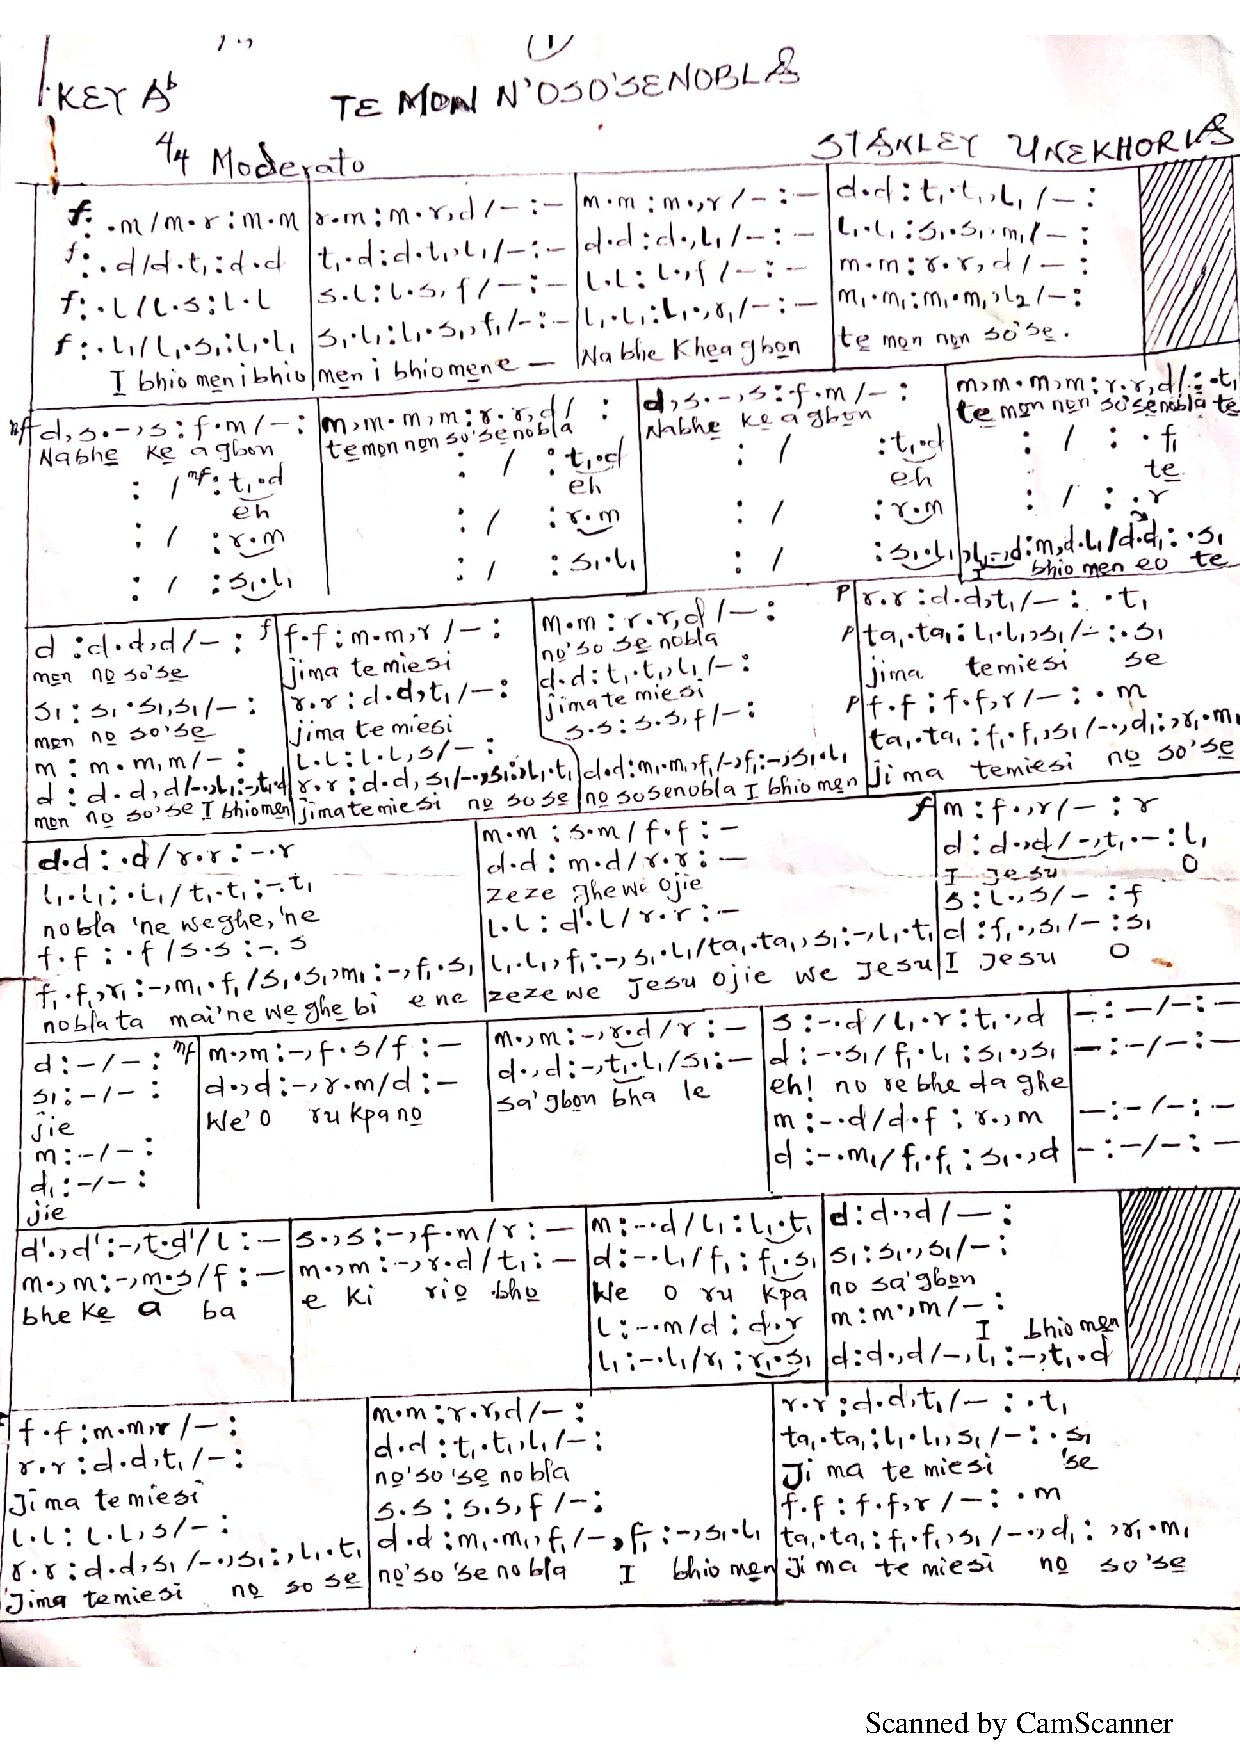 1
KEY Ab TE MON N'OSO'SENOBLA
4/4 Moderato STANLEY UNEKHORIA
f: .m/m.r:m.m | r.m:m.r,d/–:– | m.m:m.,r/–:– | d.d:t₁.t₁,l₁/–:
f: .d/d.t₁:d.d | t₁.d:d.t₁,l₁/–:– | d.d:d.,l₁/–:– | l₁.l₁:s₁.s₁,m₁/–:
f: .l/l.s:l.l | s.l:l.s,f/–:– | l.l:l.,f/–:– | m.m:r.r,d/–:
f: .l₁/l₁.s₁:l₁.l₁ | s₁.l₁:l₁.s₁,f₁/–:– | l₁.l₁:l₁.,r₁/–:– | m₁.m₁:m₁.m₁,l₂/–:
I bhio men i bhio | men i bhio mene – | Na bhe Khea gbon | te mon non so'se.
mf d,s.–,s:f.m/–: | m,m.m,m:r.r,d/ : | d,s.–,s:f.m/–: | m,m.m,m:r.r,d/:.t₁
Nabhe ke a gbon | temon non so'se nobla | Nabhe ke a gbon | te mon non so'se nobla te
: / mf:t₁.d | : / :t₁.d | : / :t₁.d | : / :.f₁
eh | eh | eh | te
: / :r.m | : / :r.m | : / :r.m | : / :.r
: / :s₁.l₁ | : / :s₁.l₁ | : / :s₁.l₁ | ,l₁–,d:m,d.l₁/d.d₁:.s₁
I bhio men eo te
d:d.d,d/–: | f f.f:m.m,r/–: | m.m:r.r,d/–: | p r.r:d.d,t₁/–:.t₁
men no so'se | jima te miesi | no'so se nobla | p ta₁.ta₁:l₁.l₁,s₁/–:.s₁
s₁:s₁.s₁,s₁/–: | r.r:d.d,t₁/–: | d.d:t₁.t₁,l₁/–: | jima temiesi se
men no so'se | jima te miesi | jima te miesi | p f.f:f.f,r/–:.m
m:m.m,m/–: | l.l:l.l,s/–: | s.s:s.s,f/–: | ta₁.ta₁:f₁.f₁,s₁/–.,d₁:,r₁.m₁
d:d.d,d/–,l₁:–,t₁.d | r.r:d.d,s₁/–.,s₁:,l₁.t₁ | d.d:m₁.m₁,f₁/–,f₁:–,s₁.l₁ | ji ma temiesi no so'se
men no so'se I bhio men | jima te miesi no so se | no sosenobla I bhio men
d.d:.d/r.r:–.r | m.m:s.m/f.f:– | f m:f.,r/–:r
l₁.l₁:.l₁/t₁.t₁:–.t₁ | d.d:m.d/r.r:– | d:d.,d/–,t₁.–:l₁
nobla 'ne weghe, 'ne | zeze ghe we ojie | I Jesu O
f.f:.f/s.s:–.s | l.l:d'.l/r.r:– | s:l.,s/–:f
f₁.f₁,r₁:–,m₁.f₁/s₁.s₁,m₁:–,f₁.s₁ | l₁.l₁,f₁:–,s₁.l₁/ta₁.ta₁,s₁:–,l₁.t₁ | d:f₁.,s₁/–:s₁
nobla ta mai'ne we ghe bi e ne | zeze we Jesu ojie we Jesu | I Jesu O
d:–/–: | mf m.,m:–,f.s/f:– | m.,m:–,r.d/r:– | s:–.d/l₁.r:t₁.,d | –:–/–:–
s₁:–/–: | d.,d:–,r.m/d:– | d.,d:–,t₁.l₁/s₁:– | d:–.s₁/f₁.l₁:s₁.,s₁ | –:–/–:–
jie | We'o ru kpa no | sa'gbon bha le | eh! no re bhe da ghe
m:–/–: | m:–.d/d.f:r.,m | –:–/–:–
d₁:–/–: | d:–.m₁/f₁.f₁:s₁.,d | –:–/–:–
jie
d'.,d':–,t.d'/l:– | s.,s:–,f.m/r:– | m:–.d/l₁:l₁.t₁ | d:d.,d/–:
m.,m:–,m.s/f:– | m.,m:–,r.d/t₁:– | d:–.l₁/f₁:f₁.s₁ | s₁:s₁.,s₁/–:
bhe ke a ba | e ki rio bho | We o ru kpa | no sa'gbon
l:–.m/d:d.r | m:m.,m/–:
I bhio men
l₁:–.l₁/r₁:r₁.s₁ | d:d.,d/–,l₁:–,t₁.d
f.f:m.m,r/–: | m.m:r.r,d/–: | r.r:d.d,t₁/–:.t₁
r.r:d.d,t₁/–: | d.d:t₁.t₁,l₁/–: | ta₁.ta₁:l₁.l₁,s₁/–:.s₁
Jima te miesi | no'so'se nobla | Ji ma te miesi 'se
l.l:l.l,s/–: | s.s:s.s,f/–: | f.f:f.f,r/–:.m
r.r:d.d,s₁/–.,s₁:,l₁.t₁ | d.d:m₁.m₁,f₁/–,f₁:–,s₁.l₁ | ta₁.ta₁:f₁.f₁,s₁/–.,d₁:,r₁.m₁
Jima temiesi no so se | no'so'se nobla I bhio men | Ji ma te miesi no so'se
Scanned by CamScanner